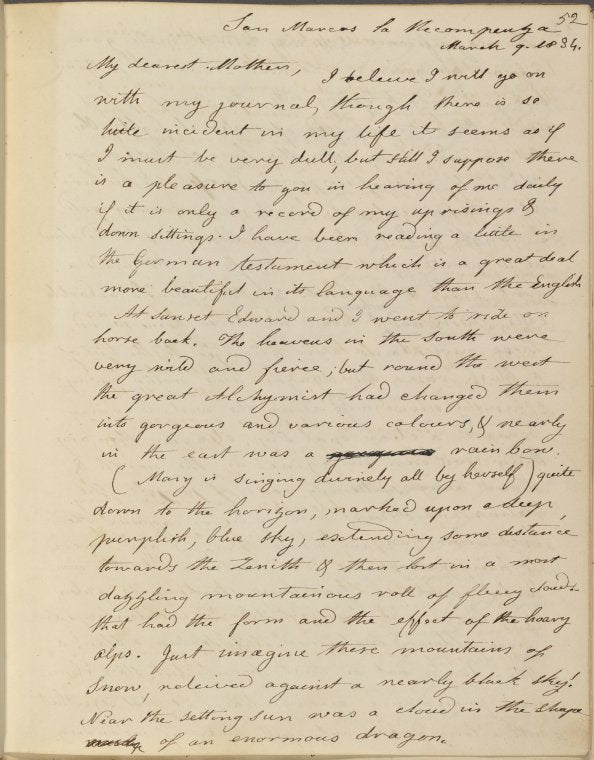 52
San Marcos la Recompenza
March 9. 1834.
My dearest Mother,
I beleive I will go on
with my journal, though there is so
little incident in my life it seems as if
I must be very dull, but still I suppose there
is a pleasure to you in hearing of me daily
if it is only a record of my uprisings &
down sittings. I have been reading a little in
the German testament which is a great deal
more beautiful in its language than the English
At sunset Edward and I went to ride on
horse back. The heavens in the South were
very wild and fierce, but round the west
the great Alchymist had changed them
into gorgeous and various colours, & nearly
in the east was a rainbow.
(Mary is singing divinely all by herself) quite
down to the horizon, marked upon a deep,
purplish, blue sky, extending some distance
towards the Zenith & then lost in a most
dazzling mountainous roll of fleecy clouds
that had the form and the effect of the hoary
alps. Just imagine these mountains of
snow, releived against a nearly black sky!
Near the setting sun was a cloud in the shape
of an enormous dragon.